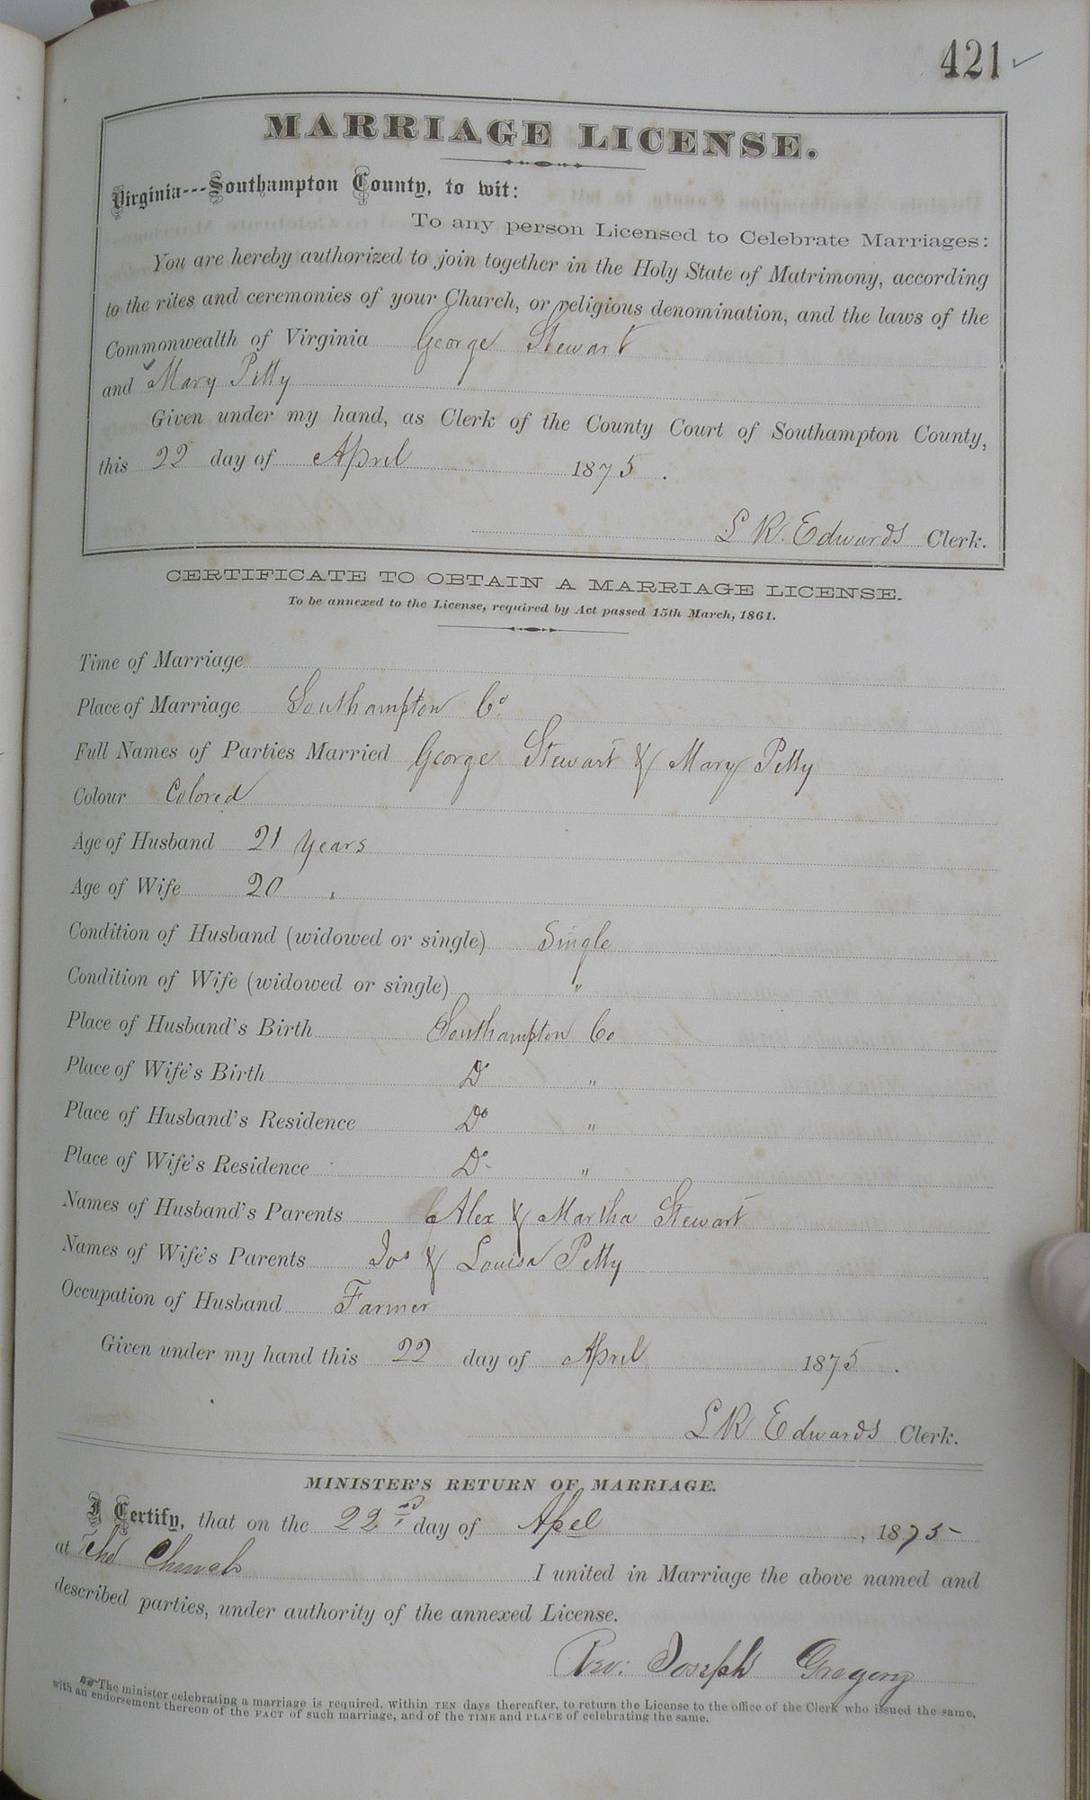 421 ✓
MARRIAGE LICENSE.
Virginia---Southampton County, to wit:
To any person Licensed to Celebrate Marriages:
You are hereby authorized to join together in the Holy State of Matrimony, according
to the rites and ceremonies of your Church, or religious denomination, and the laws of the
Commonwealth of Virginia George Stewart
and Mary Petty
Given under my hand, as Clerk of the County Court of Southampton County,
this 22 day of April 1875.
L R. Edwards Clerk.
CERTIFICATE TO OBTAIN A MARRIAGE LICENSE.
To be annexed to the License, required by Act passed 15th March, 1861.
Time of Marriage
Place of Marriage Southampton Co.
Full Names of Parties Married George Stewart & Mary Petty
Colour Colored
Age of Husband 21 Years
Age of Wife 20 "
Condition of Husband (widowed or single) Single
Condition of Wife (widowed or single) "
Place of Husband's Birth Southampton Co
Place of Wife's Birth Do "
Place of Husband's Residence Do "
Place of Wife's Residence Do "
Names of Husband's Parents Alex & Martha Stewart
Names of Wife's Parents Jos & Louisa Petty
Occupation of Husband Farmer
Given under my hand this 22 day of April 1875.
L R Edwards Clerk.
MINISTER'S RETURN OF MARRIAGE.
I Certify, that on the 22nd day of Apel, 1875
at the Church I united in Marriage the above named and
described parties, under authority of the annexed License.
Rev: Joseph Gregory
The minister celebrating a marriage is required, within TEN days thereafter, to return the License to the office of the Clerk who issued the same,
with an endorsement thereon of the FACT of such marriage, and of the TIME and PLACE of celebrating the same.